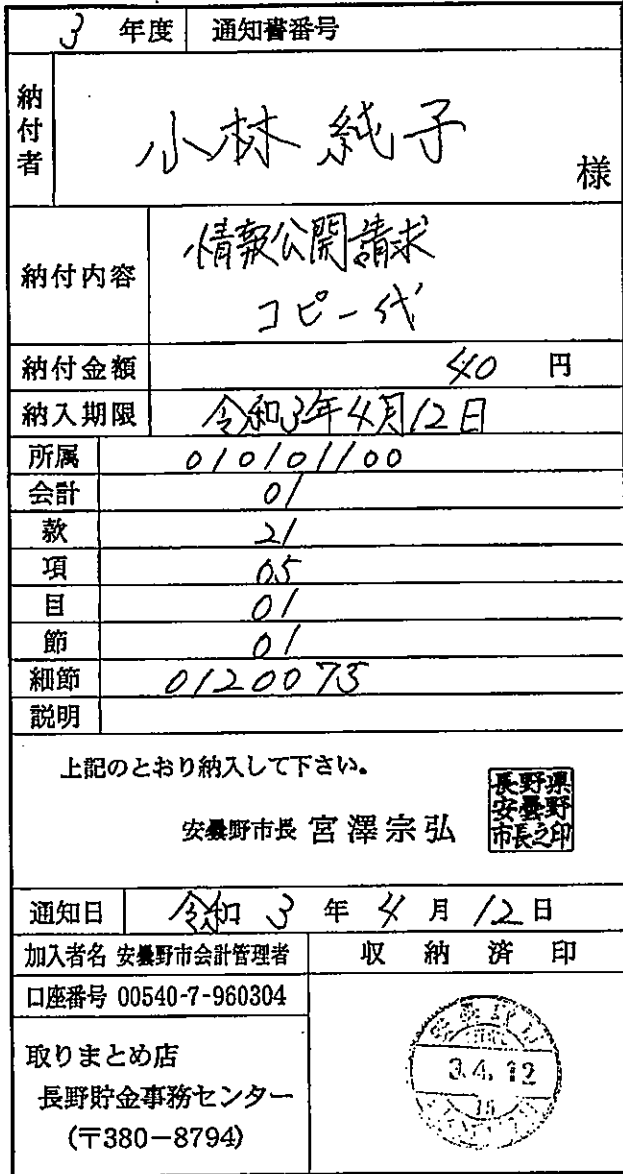 3 年度 通知書番号
納付者 小林 純子 様
納付内容 情報公開請求
コピー代
納付金額 40 円
納入期限 令和3年4月12日
所属 010101100
会計 01
款 21
項 05
目 01
節 01
細節 0120073
説明
上記のとおり納入して下さい。
安曇野市長 宮澤宗弘
長野県
安曇野
市長之印
通知日 令和 3 年 4 月 12 日
加入者名 安曇野市会計管理者 収納済印
口座番号 00540-7-960304
取りまとめ店
長野貯金事務センター
(〒380-8794)
3.4.12